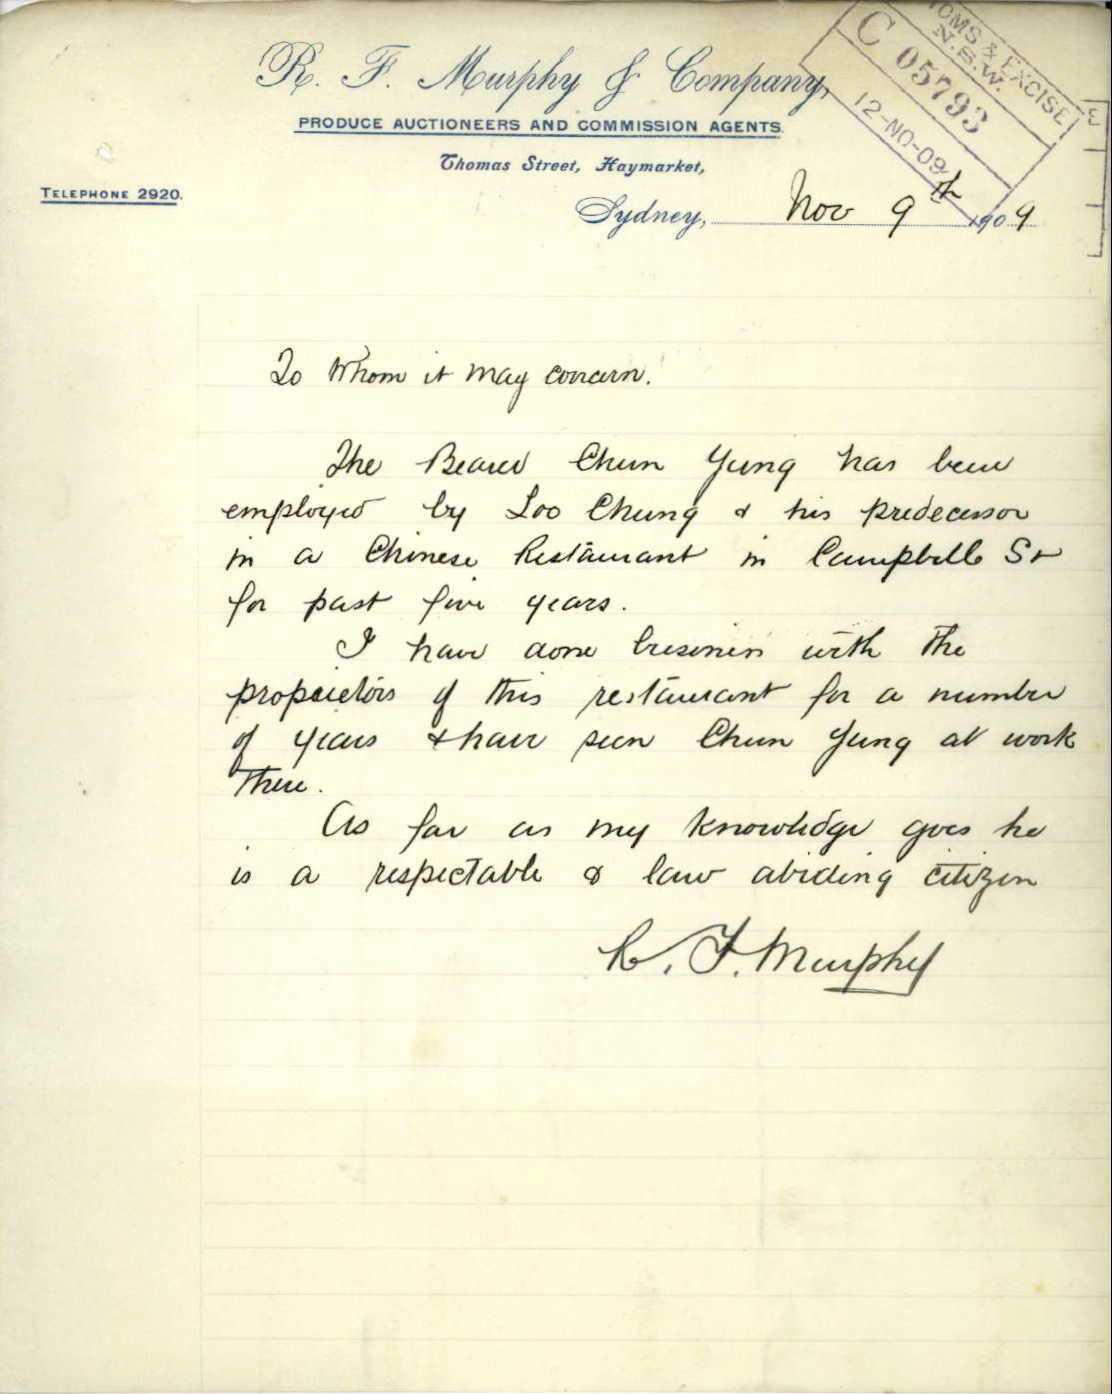 R. F. Murphy & Company,
PRODUCE AUCTIONEERS AND COMMISSION AGENTS.
Thomas Street, Haymarket,
TELEPHONE 2920.
Sydney, Nov 9th 1909
TOMS & EXCISE
N.S.W.
C 05793
12-NO-09
To Whom it May concern.
The Bearer Chun Yung has been
employed by Loo Chung & his predecessor
in a Chinese Restaurant in Campbell St
for past five years.
I have done business with the
proprietors of this restaurant for a number
of years & have seen Chun Yung at work
there.
As far as my knowledge goes he
is a respectable & law abiding citizen
R. F. Murphy